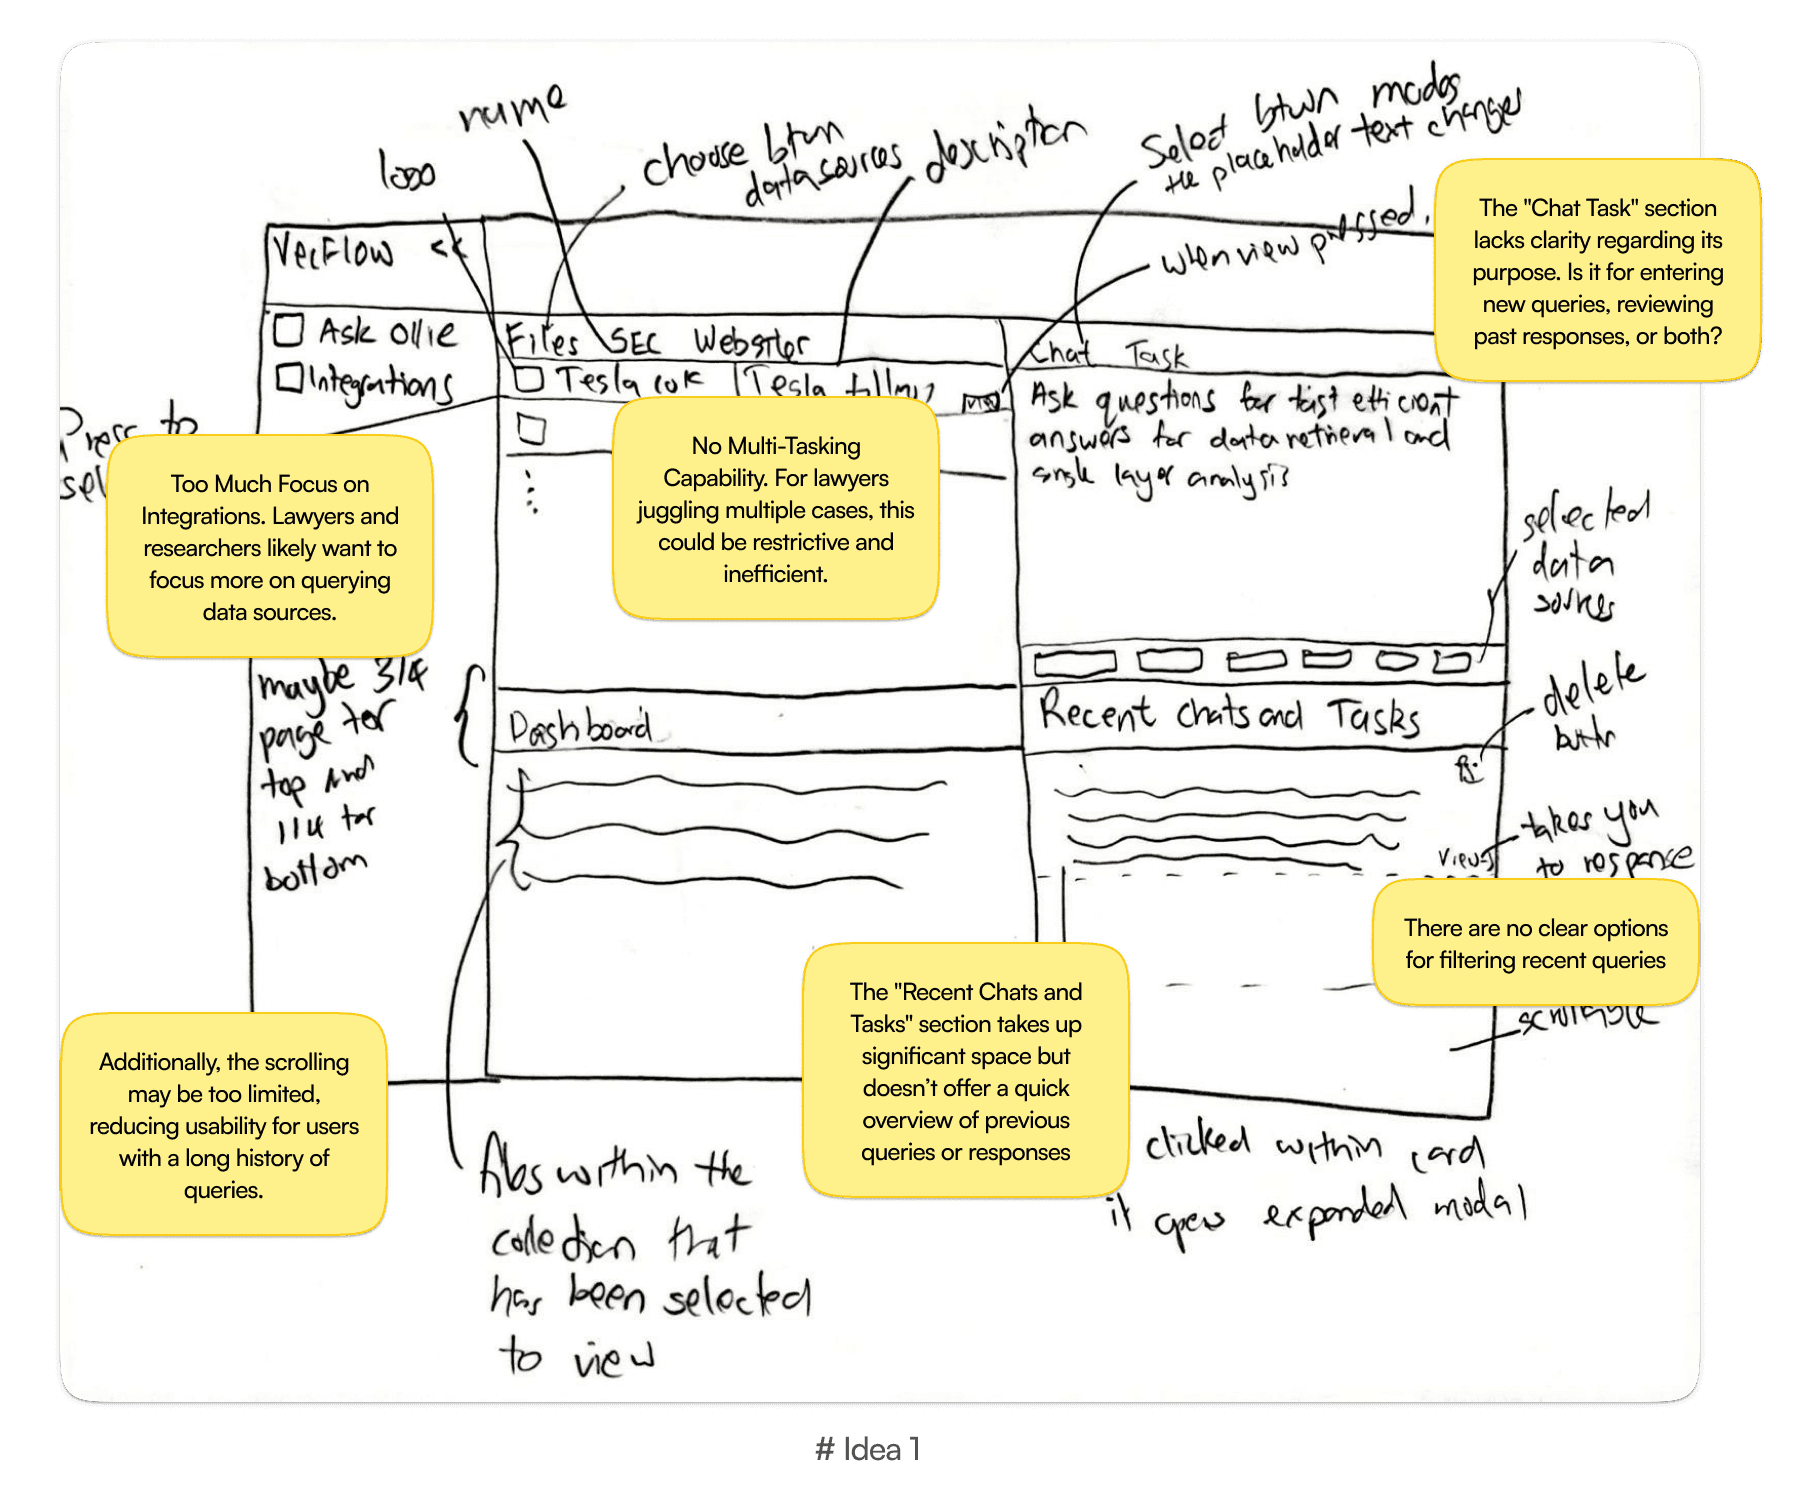 name
logo
choose btwn
data sources
description
Select btwn modes
the placeholder text changes
when view pressed.
The "Chat Task" section
lacks clarity regarding its
purpose. Is it for entering
new queries, reviewing
past responses, or both?
VecFlow <<
Ask Ollie
Integrations
Files SEC Website
Tesla 10K | Tesla filing
Chat Task
Ask questions for fast efficient
answers for data retrieval and
single layer analysis
Press to
sel
Too Much Focus on
Integrations. Lawyers and
researchers likely want to
focus more on querying
data sources.
No Multi-Tasking
Capability. For lawyers
juggling multiple cases, this
could be restrictive and
inefficient.
selected
data
sources
maybe 3/4
page for
top and
1/4 for
bottom
Dashboard
Recent Chats and Tasks
delete
button
View
takes you
to response
There are no clear options
for filtering recent queries
scrollable
The "Recent Chats and
Tasks" section takes up
significant space but
doesn't offer a quick
overview of previous
queries or responses
Additionally, the scrolling
may be too limited,
reducing usability for users
with a long history of
queries.
files within the
collection that
has been selected
to view
clicked within card
it opens expanded modal
# Idea 1